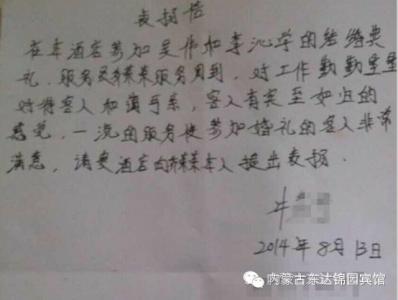 表扬信
在本酒店参加吴伟和李沁学的结婚典
礼，服务员服务周到，对工作勤勤垦垦
对待客人和蔼可亲，客人有宾至如归的
感觉，一流的服务使参加婚礼的客人非常
满意，请贵酒店给本人提出表扬．
牛
2014年8月13日
内蒙古东达锦园宾馆